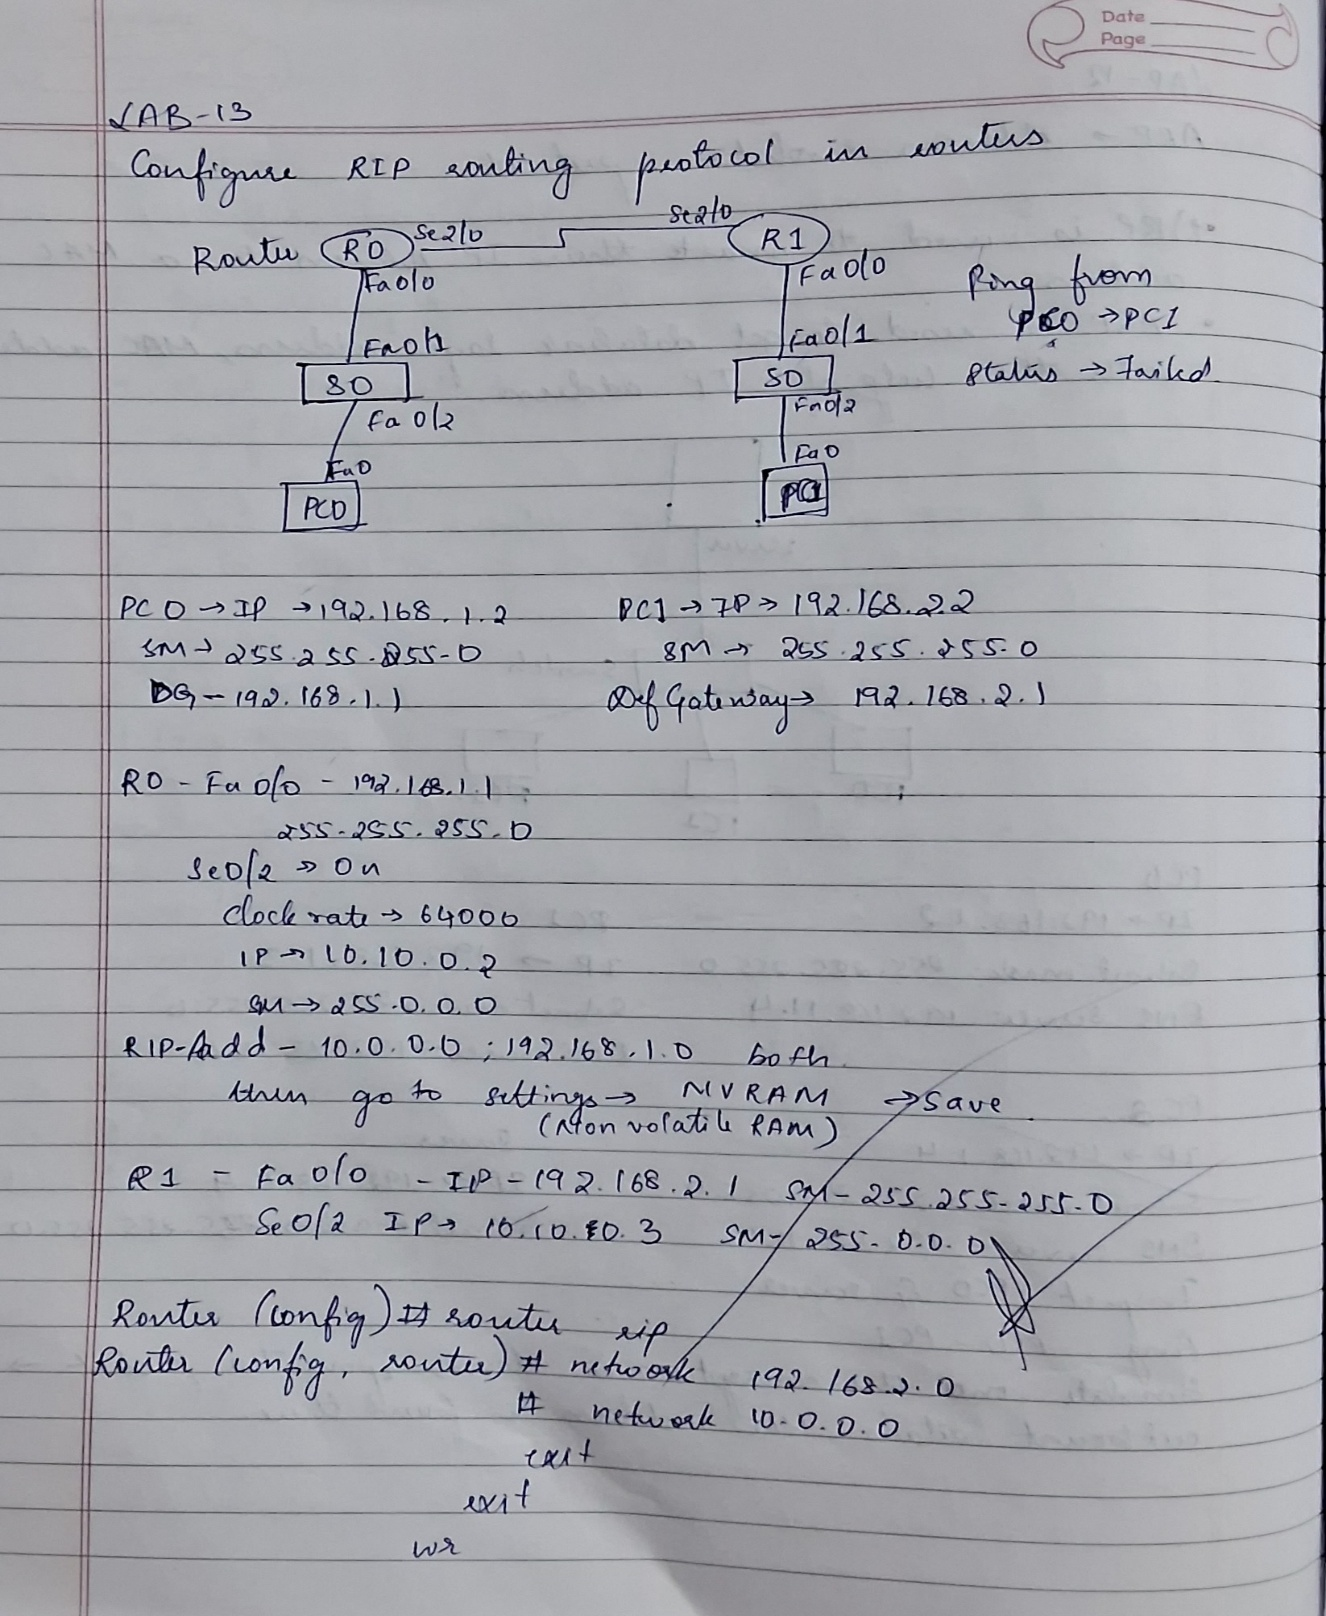 Date
Page
LAB-13
Configure RIP routing protocol in routers
Router R0 Se2/0 Se2/0 R1
Fa0/0 Fa0/0 Ping from
PC0 → PC1
Fa0/1 Fa0/1
S0 S0 Status → Failed
Fa 0/2 Fa0/2
Fa0 Fa0
PC0 PC1
PC0 → IP → 192.168.1.2 PC1 → IP → 192.168.2.2
SM → 255.255.255.0 SM → 255.255.255.0
DG - 192.168.1.1 Def Gateway → 192.168.2.1
R0 - Fa 0/0 - 192.168.1.1
255.255.255.0
Se0/2 → On
clock rate → 64000
IP → 10.10.0.2
SM → 255.0.0.0
RIP-Add - 10.0.0.0 ; 192.168.1.0 both
then go to settings → NVRAM → save
(Non volatile RAM)
R1 - Fa 0/0 - IP - 192.168.2.1 SM - 255.255.255.0
Se0/2 IP → 10.10.0.3 SM - 255.0.0.0
Router (config) # router rip
Router (config, router) # network 192.168.2.0
# network 10.0.0.0
exit
exit
wr